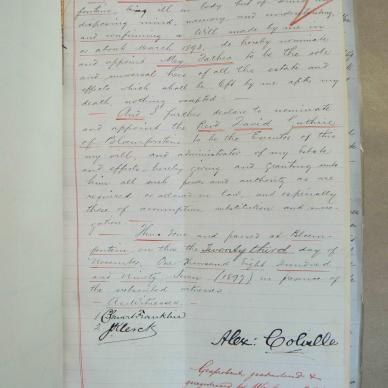 fontein, being ill in body but of sound and
disposing mind, memory and understanding,
and confirming a Will made by me in
or about March 1893, do hereby nominate
and appoint My Father to be the sole
and universal heir of all the estate and
effects which shall be left by me after my
death, nothing excepted. —
— And I further declare to nominate
and appoint the Revd David Guthrie
of Bloemfontein to be the Executor of this
my will, and administrator of my Estate
and effects, hereby giving and granting unto
him all such power and authority as are
required or allowed in law, and especially
those of assumption substitution and surro-
gation. —
— Thus done and passed at Bloem-
fontein on this the Twenty third day of
November One thousand Eight hundred
and Ninety Seven (1897) in presence of
the undersigned witnesses
— As Witnesses —
1 Franklin
2 Klerck
Alex: Colville